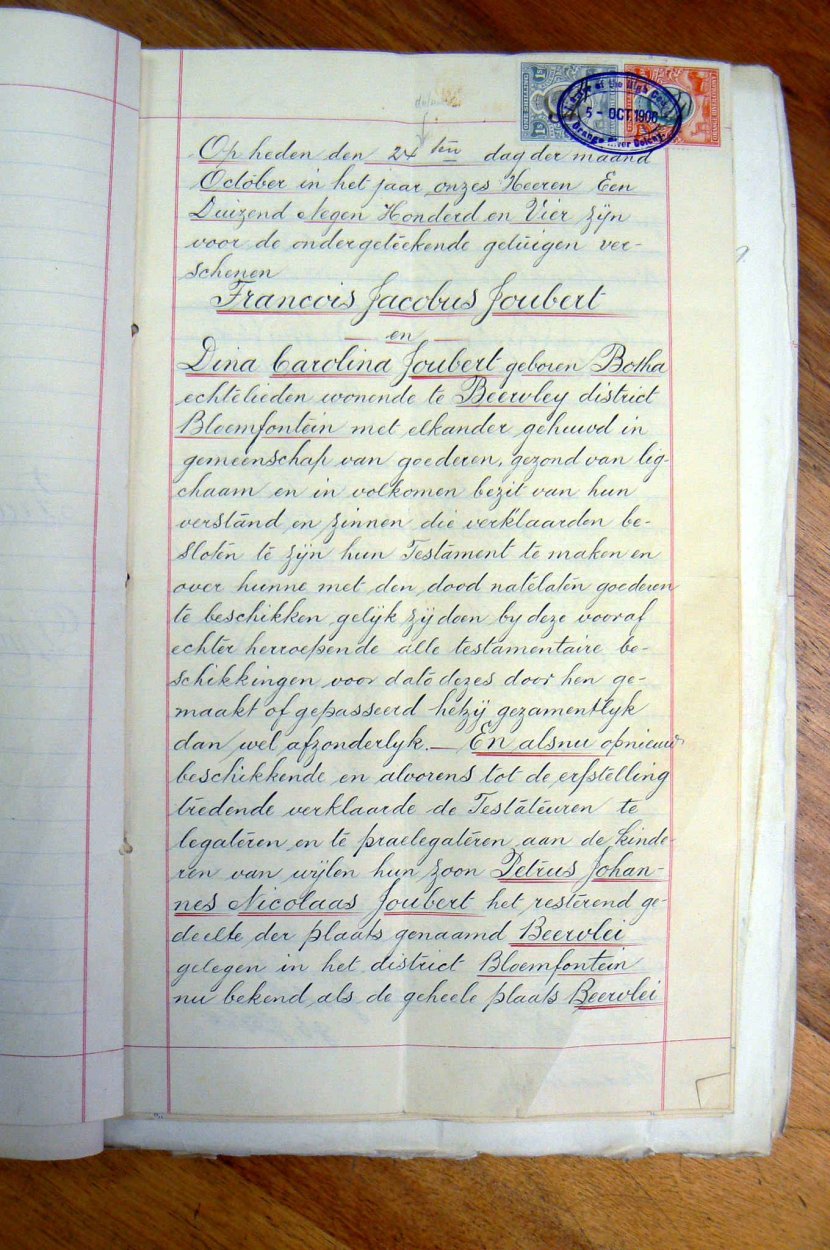 5 - OCT. 1906
Op heden den 24 ten dag der maand
October in het jaar onzes Heeren Een
Duizend Negen Honderd en Vier zijn
voor de ondergeteekende getuigen ver-
schenen
Francois Jacobus Joubert
en
Dina Carolina Joubert geboren Botha
echtelieden wonende te Beervley district
Bloemfontein met elkander gehuwd in
gemeenschap van goederen, gezond van lig-
chaam en in volkomen bezit van hun
verstand en zinnen die verklaarden be-
sloten te zijn hun Testament te maken en
over hunne met den dood natelaten goederen
te beschikken gelijk zij doen by deze vooraf
echter herroepende alle testamentaire be-
schikkingen voor dato dezes door hen ge-
maakt of gepasseerd hetzij gezamentlyk
dan wel afzonderlyk. — En alsnu opnieuw
beschikkende en alvorens tot de erfstelling
tredende verklaarde de Testateuren te
legateren en te praelegateren aan de kinde-
ren van wijlen hun zoon Petrus Johan-
nes Nicolaas Joubert het resterend ge-
deelte der plaats genaamd Beervlei
gelegen in het district Bloemfontein
nu bekend als de geheele plaats Beervlei